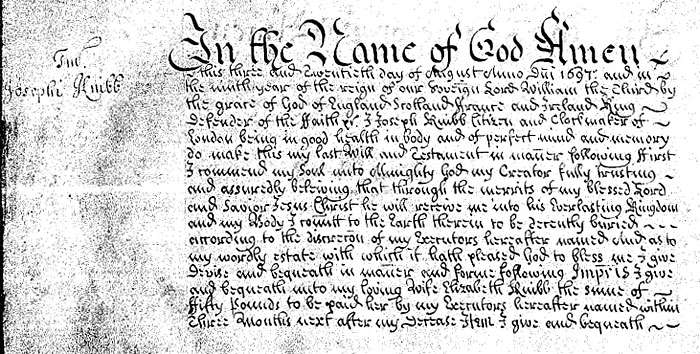 Tm̃
Josephi Knibb
In the Name of God Amen
this three and Twentieth day of August Anno Dñi 1697: and in
the ninth year of the reign of our Soverign Lord William the Third by
the grace of God of England Scotland ffrance and Ireland King
Defender of the ffaith &c I Joseph Knibb Citizen and Clockmaker of
London being in good health in body and of perfect mind and memory
do make this my last Will and Testament in mañer following ffirst
I commend my Soul unto Almighty God my Creator fully trusting
and assuredly beleiving that through the merrits of my blessed Lord
and Savior Jesus Christ he will receive me unto his Everlasting Kingdom
and my Body I comitt to the Earth therein to be decently buried
according to the discrecõn of my Executors hereafter named And as to
my wordly estate with which it hath pleased God to bless me I give
Devise and bequeath in mañer and forme following Impris I give
and bequeath unto my loving Wife Elizabeth Knibb the sume of
ffifty Pounds to be paid her by my Executors hereafter named within
Three Months next after my decease Item I give and bequeath